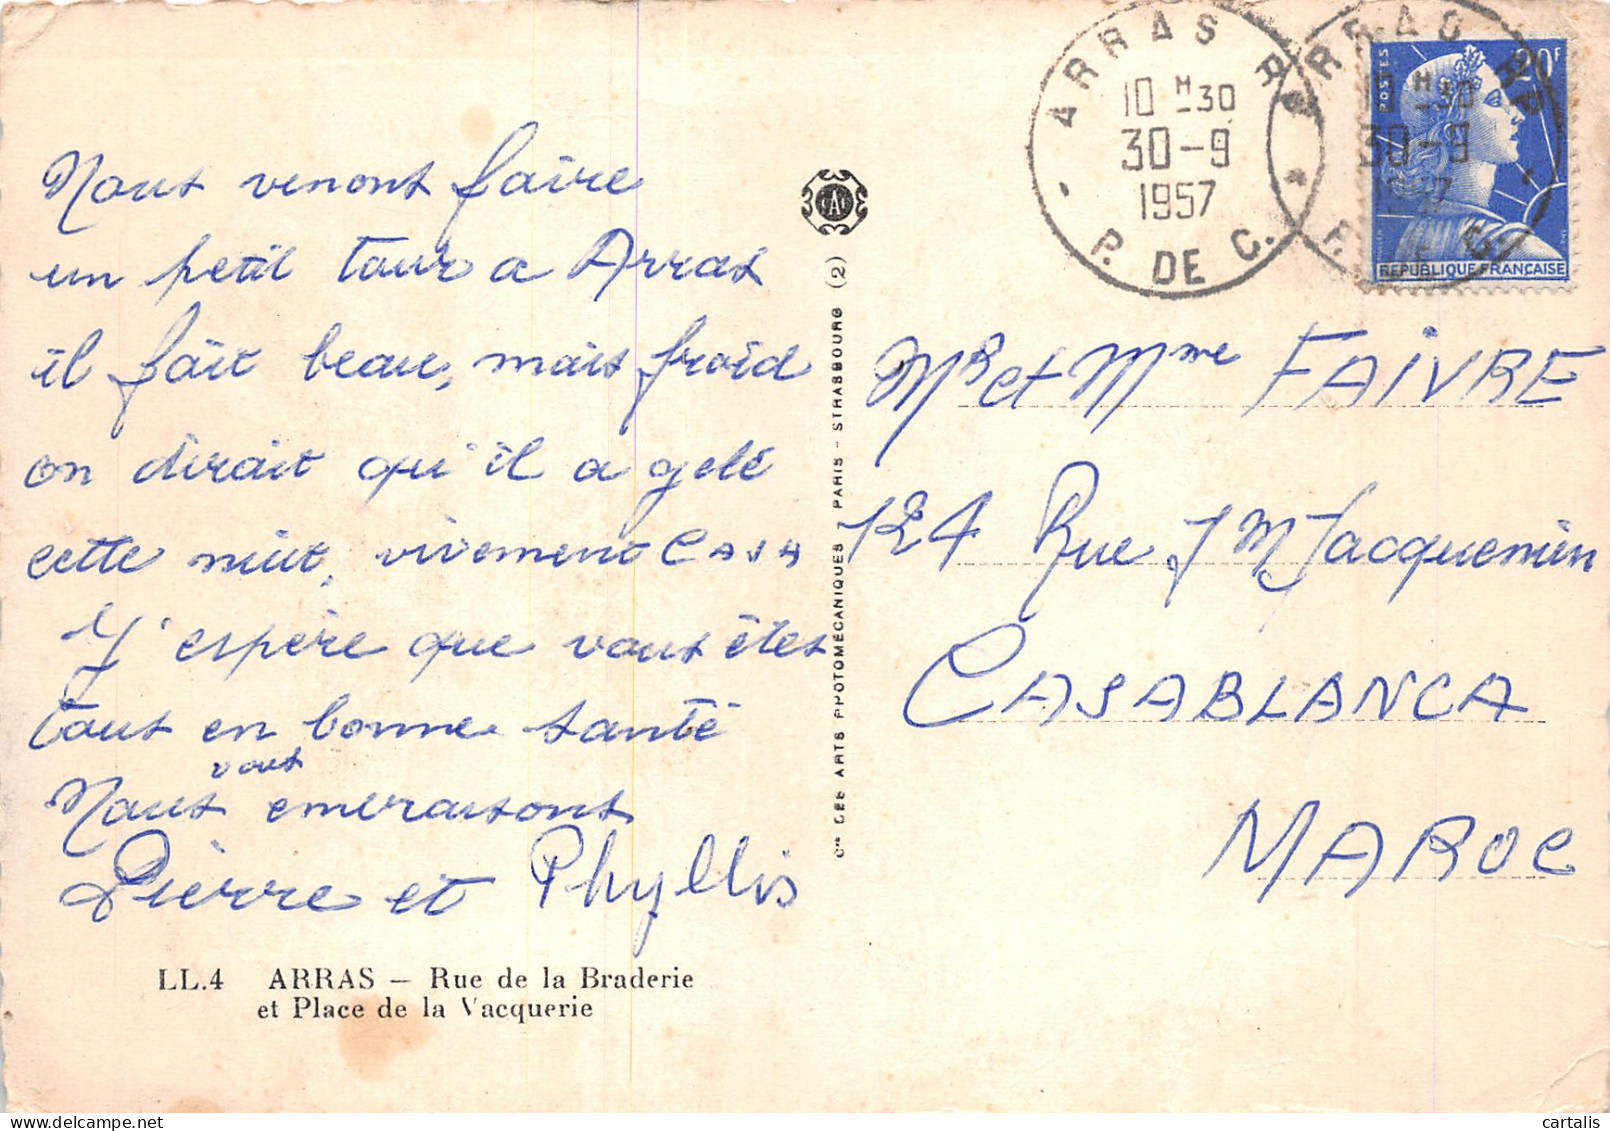 Nous venons faire
un petit tour a Arras
il fait beau, mais froid
on dirait qu'il a gelé
cette nuit, vivement CASA
J'espère que vous êtes
tous en bonne santé
vous
Nous embrassons
Pierre et Phyllis
LL.4 ARRAS — Rue de la Braderie
et Place de la Vacquerie
Cie DES ARTS PHOTOMÉCANIQUES, PARIS - STRASBOURG (2)
CAP
ARRAS R.P.
10 H 30
30-9
1957
P. DE C.
ARRAS R.P.
10 H 30
30-9
1957
P. DE C.
POSTES
20F
REPUBLIQUE FRANÇAISE
Mr et Mme FAIVRE
124 Rue J M Jacquemin
CASABLANCA
MAROC
cartalis